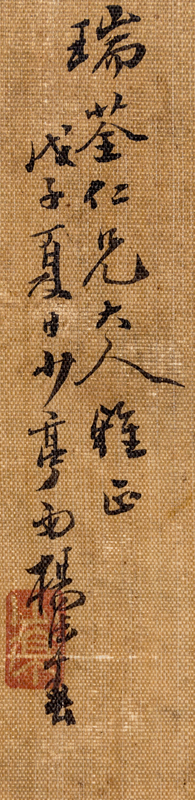 瑞荃仁兄大人雅正
戊子夏日少亭楊